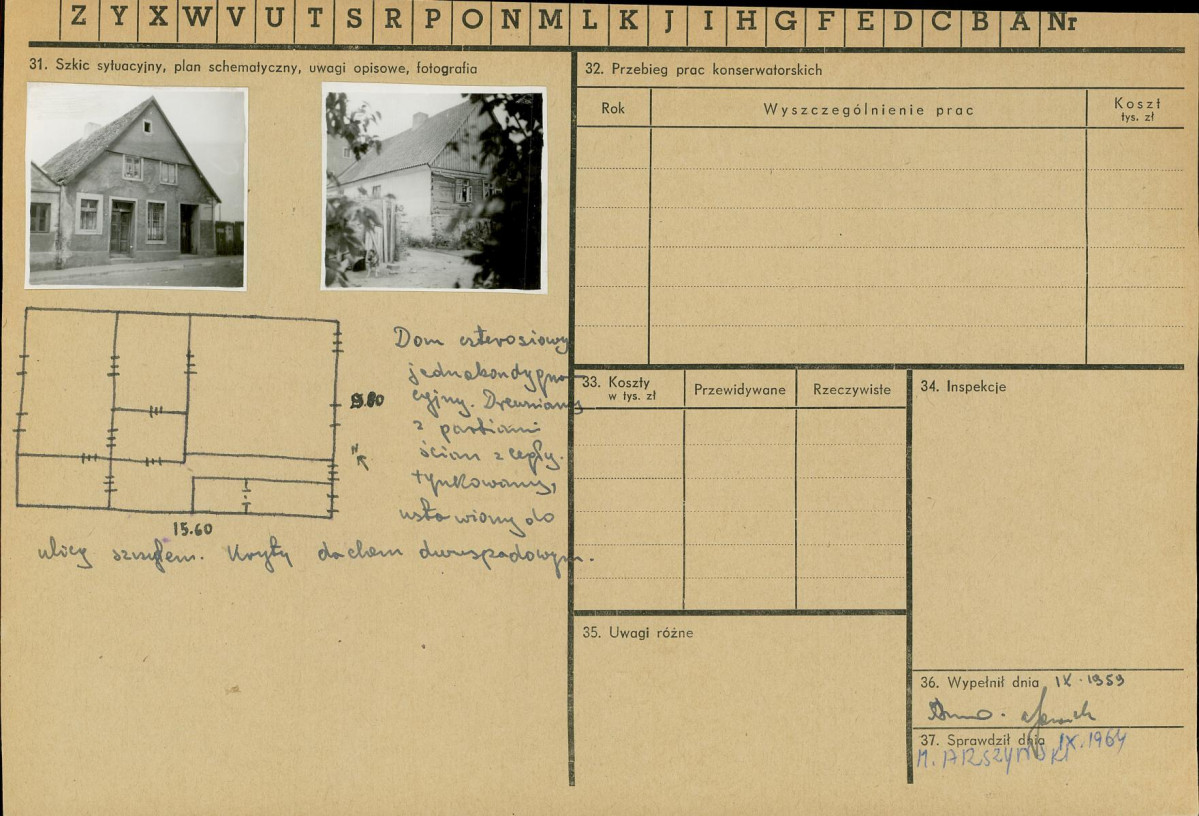 Z Y X W V U T S R P O N M L K J I H G F E D C B A Nr
31. Szkic sytuacyjny, plan schematyczny, uwagi opisowe, fotografia
9.80
N
15.60
Dom czterosiowy
jednokondygna-
cyjny. Drewniany
z partiami
ścian z cegły.
tynkowany,
ustawiony do
ulicy szczytem. Kryty dachem dwuspadowym.
32. Przebieg prac konserwatorskich
Rok
Wyszczególnienie prac
Koszt
tys. zł
33. Koszty
w tys. zł
Przewidywane
Rzeczywiste
34. Inspekcje
35. Uwagi różne
36. Wypełnił dnia IX.1959
37. Sprawdził dnia IX.1964
M. ARSZYŃSKI